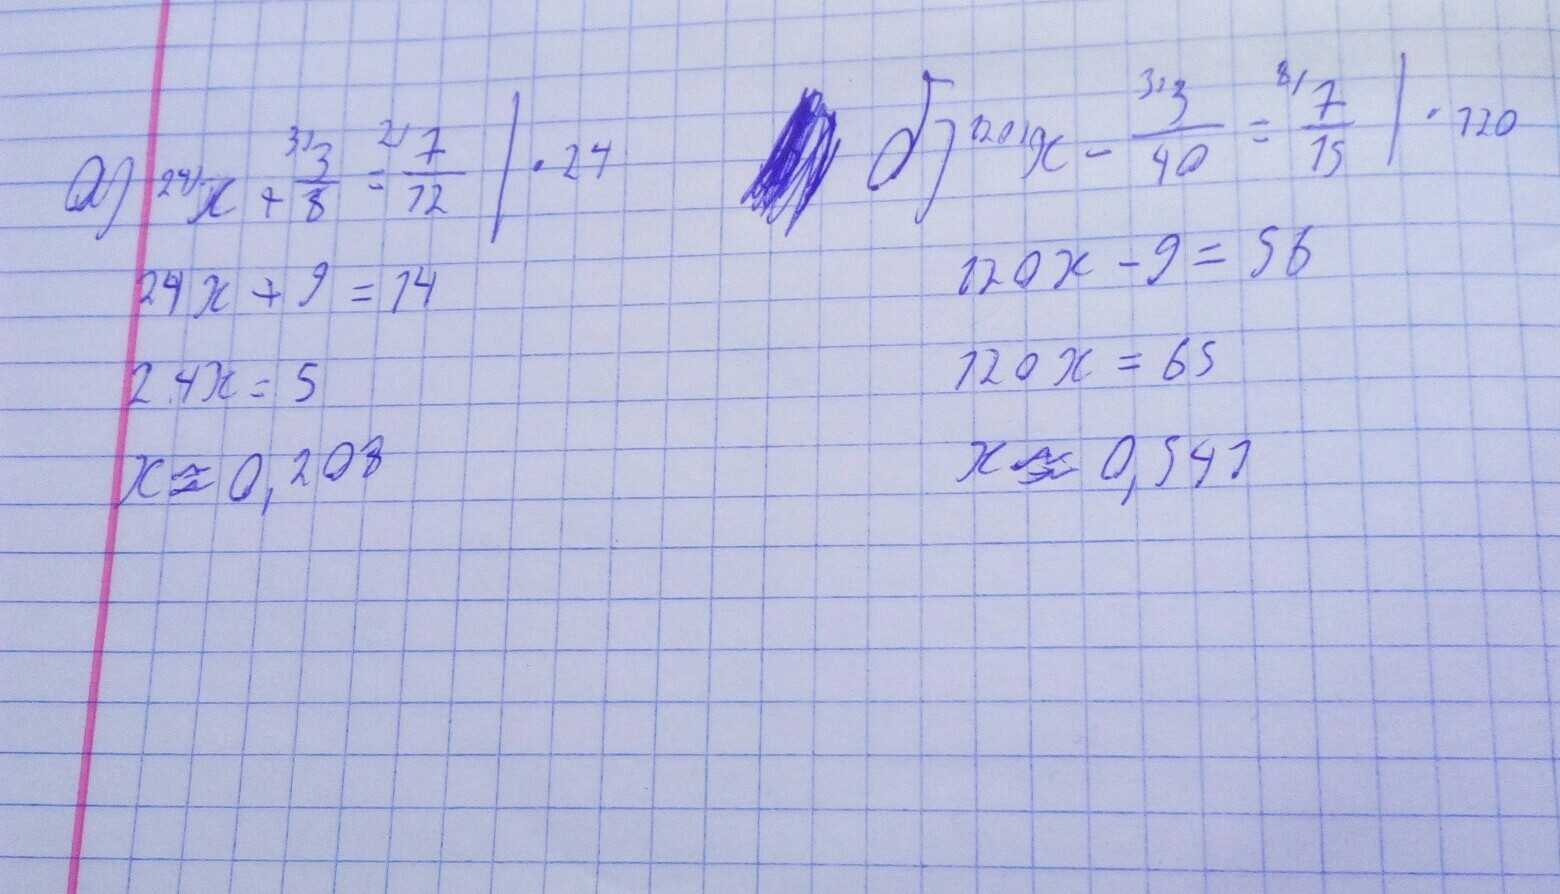 а) 24/x + 3/3/8 = 2/7/12 | · 24
24x + 9 = 14
24x = 5
x ≈ 0,208
б) 120/x - 3/3/40 = 8/7/15 | · 120
120x - 9 = 56
120x = 65
x ≈ 0,541